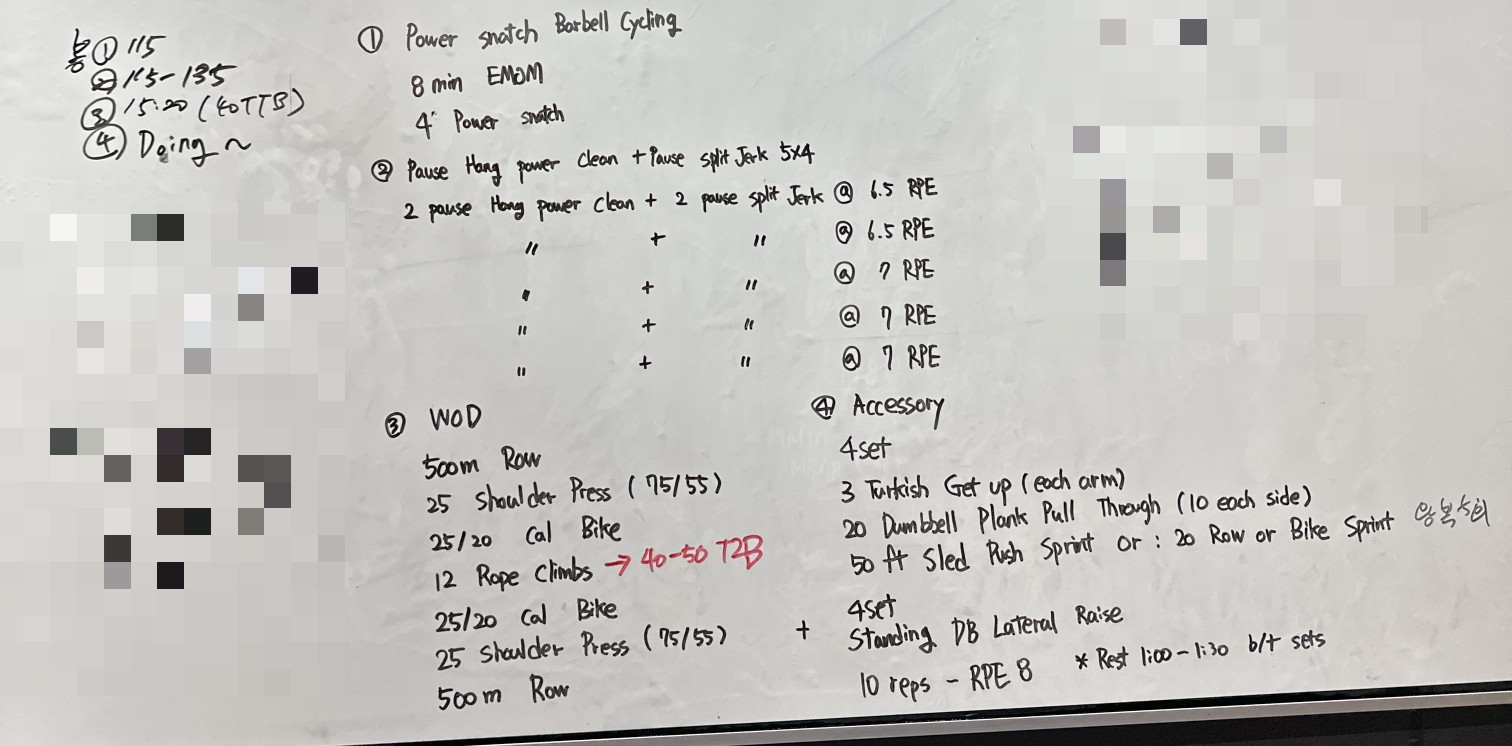 봉 ① 115
② 115-135
③ 15:20 (40TTB)
④ Doing ~
① Power snatch Barbell Cycling
8 min EMOM
4 Power snatch
② Pause Hang power clean + Pause split Jerk 5x4
2 pause Hang power clean + 2 pause split Jerk @ 6.5 RPE
〃 + 〃 @ 6.5 RPE
〃 + 〃 @ 7 RPE
〃 + 〃 @ 7 RPE
〃 + 〃 @ 7 RPE
③ WOD
500m Row
25 Shoulder Press (75/55)
25/20 Cal Bike
12 Rope Climbs → 40-50 T2B
25/20 Cal Bike
25 Shoulder Press (75/55)
500m Row
④ Accessory
4set
3 Turkish Get up (each arm)
20 Dumbbell Plank Pull Through (10 each side)
50 ft Sled Push Sprint or : 20 Row or Bike Sprint
+ 4set
Standing DB Lateral Raise
10 reps - RPE 8 * Rest 1:00-1:30 b/t sets